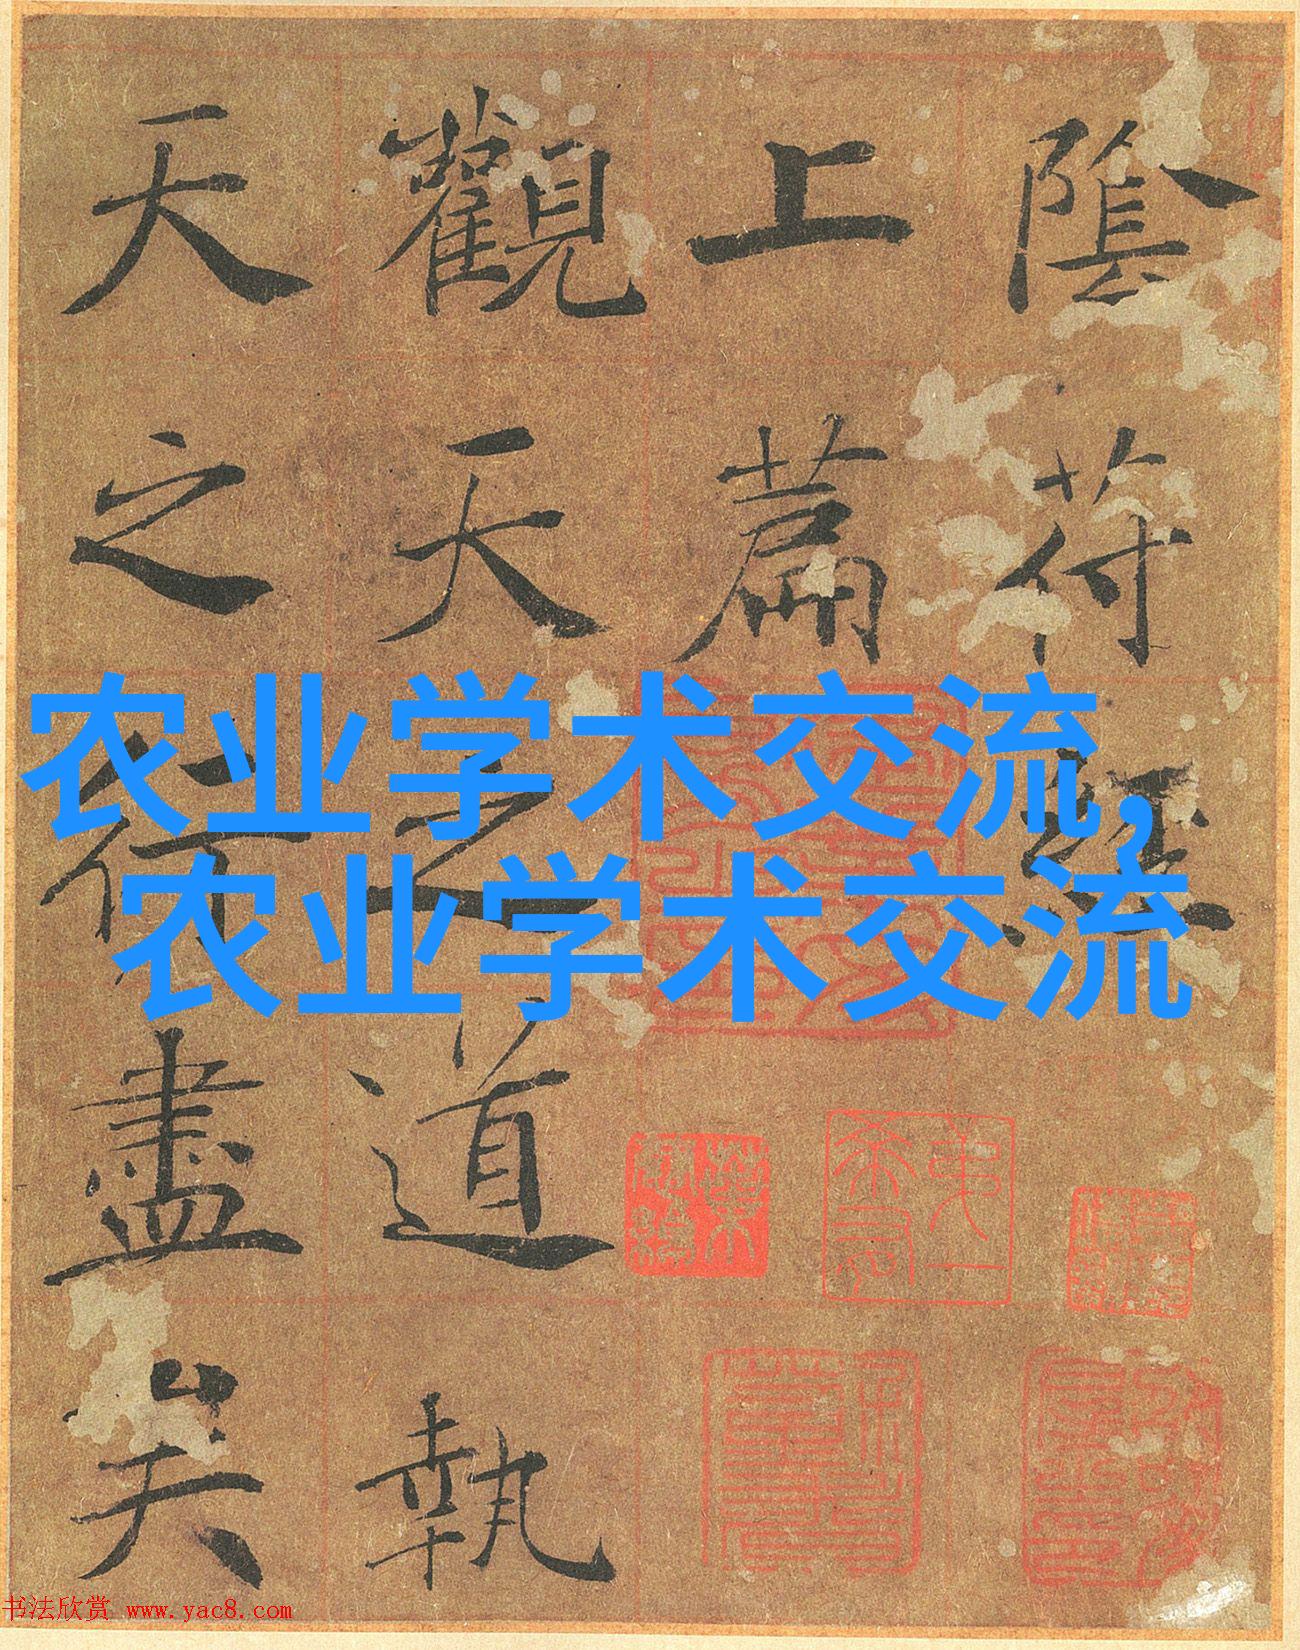 陰符經
上篇
觀天之道執
天之行盡矣
农业学术交流,
农业学术交流
书法欣赏 www.yac8.com